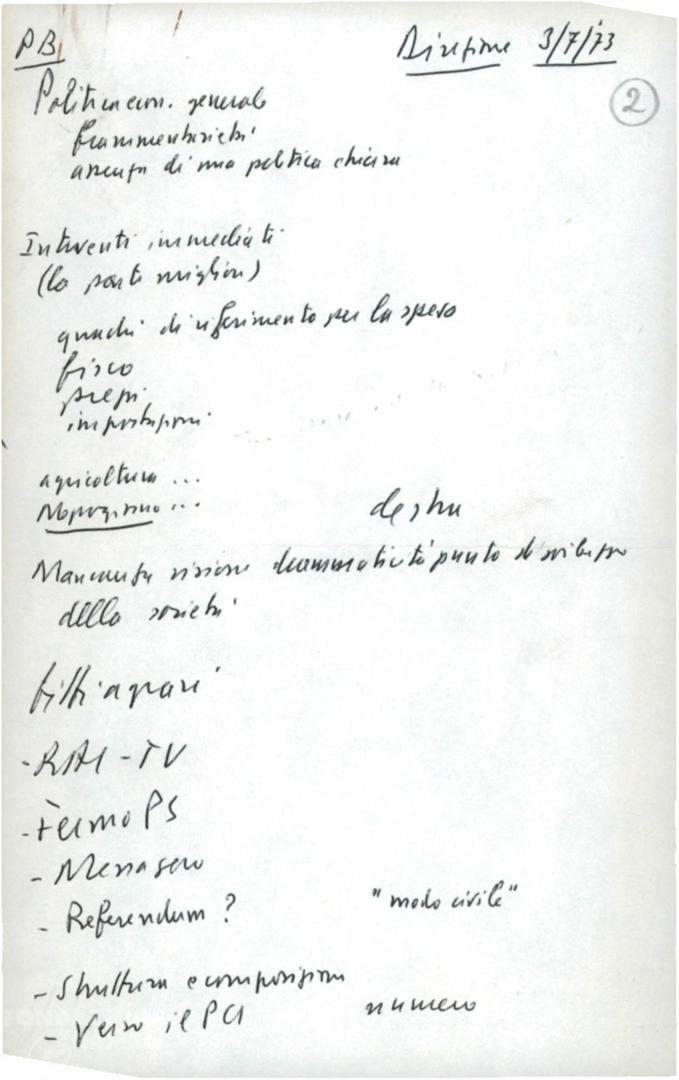 PB Direzione 3/7/73
2
Politica econ. generale
frammentarietà
assenza di una politica chiara
Interventi immediati
(la parte migliore)
quadri di riferimento per la spesa
fisco
prezzi
importazioni
agricoltura ...
Mezzogiorno ...
destra
Mancanza visione drammaticità punto di sviluppo
della società
fitti agrari
- RAI-TV
- Fermo PS
- Messaggero
- Referendum ? "modo civile"
- Struttura e composizione
- Verso il PCI numero